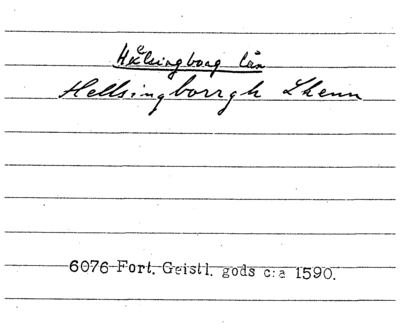 Hälsingborg län
Hellsingborrgh Lhenn
6076 Fort. Geistl. gods c:a 1590.